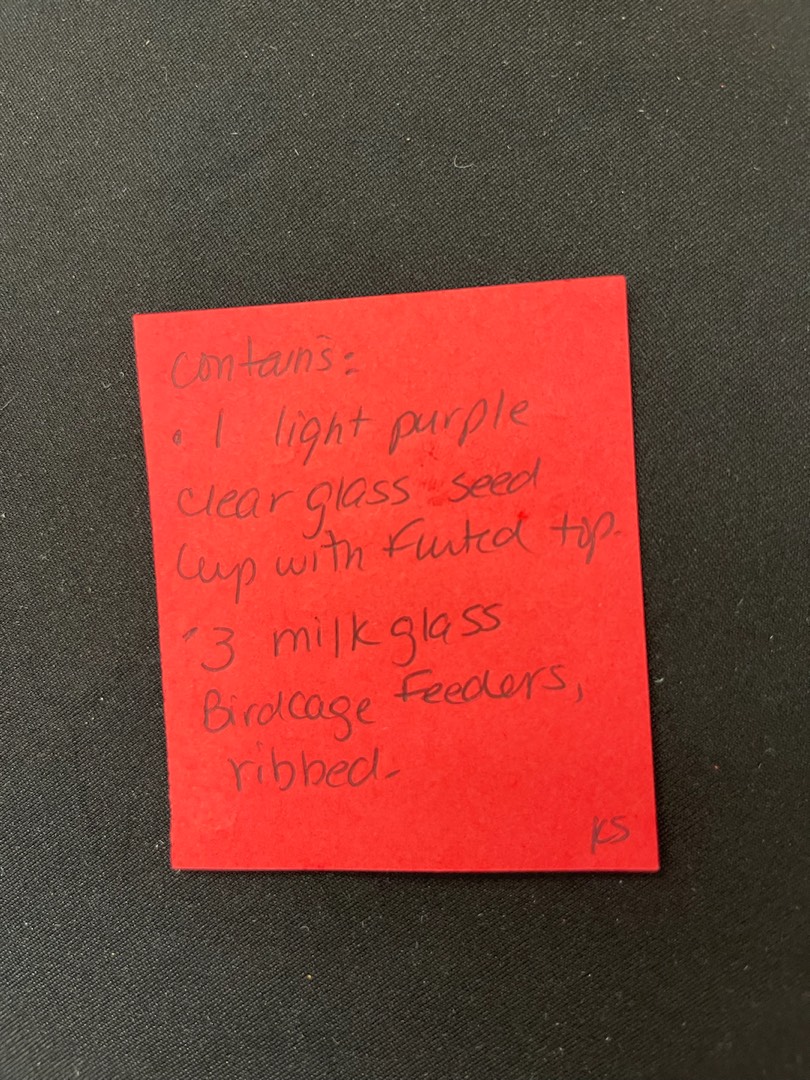 contains:
• 1 light purple
clear glass seed
cup with fluted top.
• 3 milk glass
Birdcage feeders,
ribbed.
KS